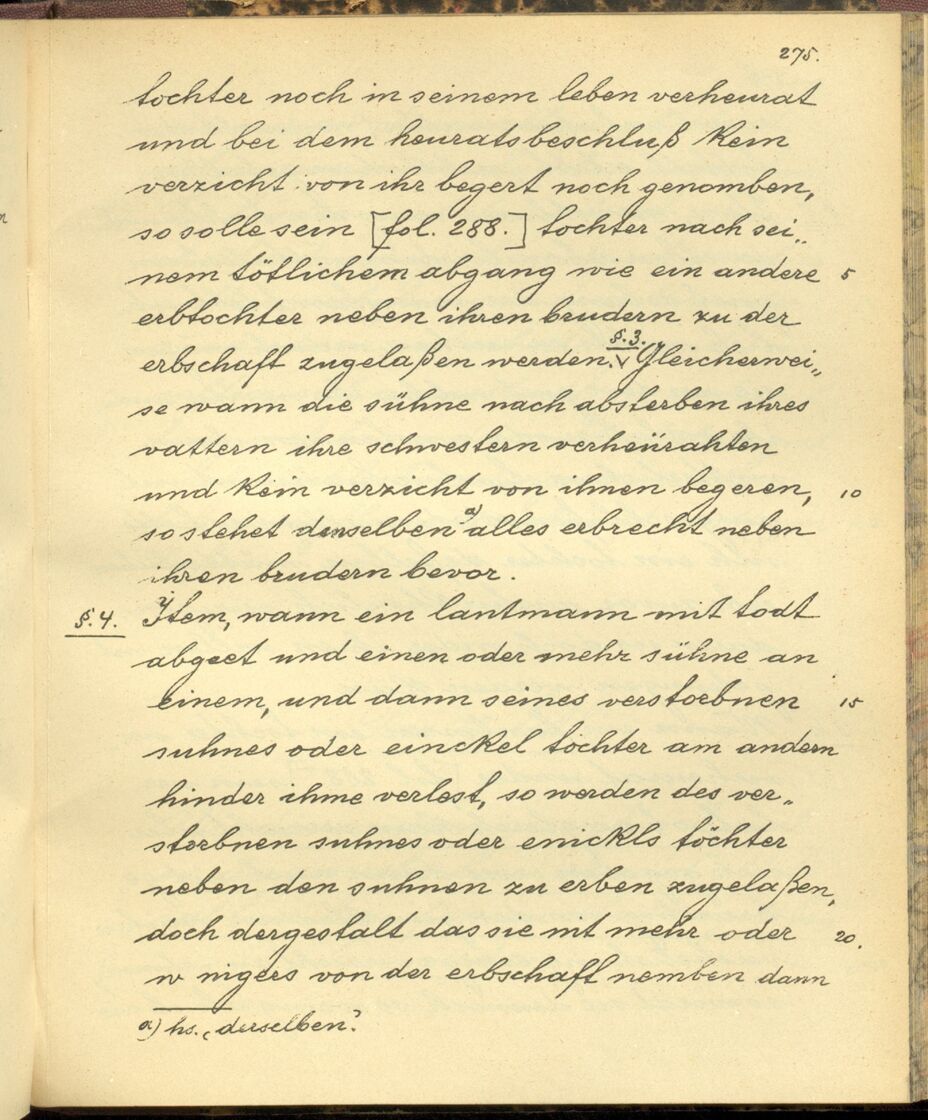 275.
tochter noch in seinem leben verheurat
und bei dem heuratsbeschluß kein
verzicht von ihr begert noch genomben,
so solle sein [fol. 288.] tochter nach sei„
nem tötlichem abgang wie ein andere 5
erbtochter neben ihren brudern zu der
erbschaft zugelaßen werden. §.3. Gleicherwei„
se wann die sühne nach absterben ihres
vattern ihre schwestern verheürahten
und kein verzicht von ihnen begeren, 10
so stehet denselben a) alles erbrecht neben
ihren brudern bevor.
§.4. Item, wann ein lantmann mit todt
abgeet und einen oder mehr sühne an
einem, und dann seines verstorbnen 15
suhnes oder einckel töchter am andern
hinder ihme verlest, so werden des ver„
storbnen suhnes oder enickls töchter
neben den suhnen zu erben zugelaßen,
doch dergestalt das sie nit mehr oder 20.
w nigers von der erbschaft nemben dann
a) hs. „derselben“.